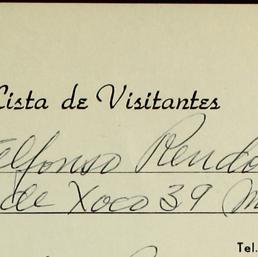 Lista de Visitantes
elfonso Rendo
de Xoco 39 M
Tel.